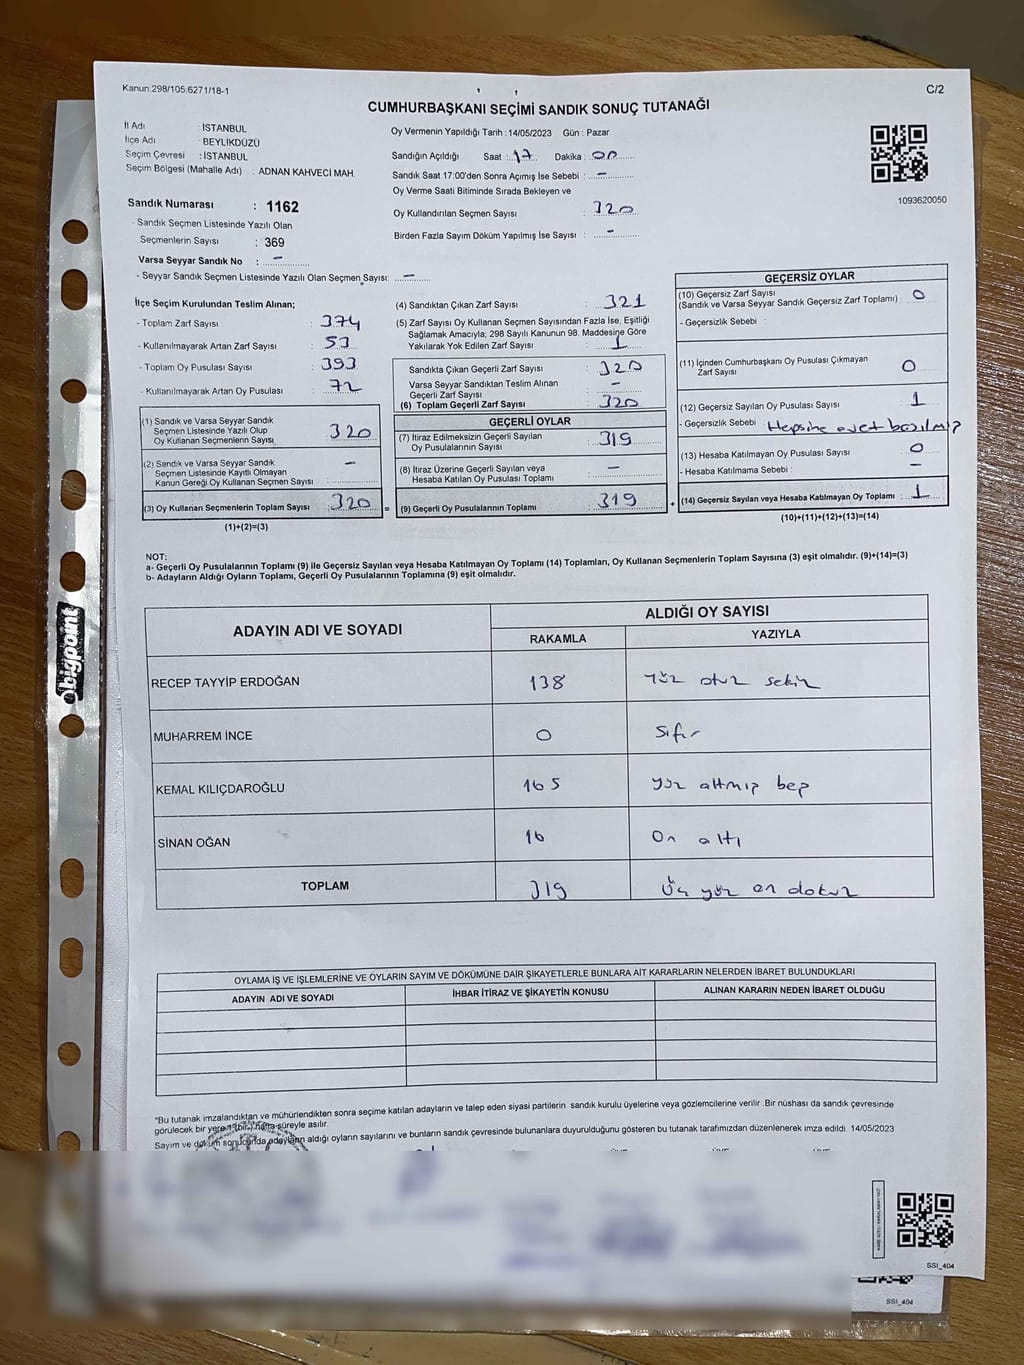 Kanun.298/105.6271/18-1
C/2
CUMHURBAŞKANI SEÇİMİ SANDIK SONUÇ TUTANAĞI
İl Adı : İSTANBUL
İlçe Adı : BEYLİKDÜZÜ
Seçim Çevresi : İSTANBUL
Seçim Bölgesi (Mahalle Adı) : ADNAN KAHVECİ MAH.
Sandık Numarası : 1162
- Sandık Seçmen Listesinde Yazılı Olan
Seçmenlerin Sayısı : 369
Varsa Seyyar Sandık No : -
- Seyyar Sandık Seçmen Listesinde Yazılı Olan Seçmen Sayısı: -
Oy Vermenin Yapıldığı Tarih : 14/05/2023 Gün : Pazar
Sandığın Açıldığı Saat : 17 Dakika : 00
Sandık Saat 17:00'den Sonra Açımış İse Sebebi : -
Oy Verme Saati Bitiminde Sırada Bekleyen ve
Oy Kullandırılan Seçmen Sayısı : 320
Birden Fazla Sayım Döküm Yapılmış İse Sayısı : -
1093620050
İlçe Seçim Kurulundan Teslim Alınan;
- Toplam Zarf Sayısı : 374
- Kullanılmayarak Artan Zarf Sayısı : 53
- Toplam Oy Pusulası Sayısı : 393
- Kullanılmayarak Artan Oy Pusulası : 72
(1) Sandık ve Varsa Seyyar Sandık
Seçmen Listesinde Yazılı Olup
Oy Kullanan Seçmenlerin Sayısı : 320
(2) Sandık ve Varsa Seyyar Sandık
Seçmen Listesinde Kayıtlı Olmayan
Kanun Gereği Oy Kullanan Seçmen Sayısı : -
(3) Oy Kullanan Seçmenlerin Toplam Sayısı : 320 =
(1)+(2)=(3)
(4) Sandıktan Çıkan Zarf Sayısı : 321
(5) Zarf Sayısı Oy Kullanan Seçmen Sayısından Fazla İse, Eşitliği
Sağlamak Amacıyla; 298 Sayılı Kanunun 98. Maddesine Göre
Yakılarak Yok Edilen Zarf Sayısı : 1
Sandıkta Çıkan Geçerli Zarf Sayısı : 320
Varsa Seyyar Sandıktan Teslim Alınan
Geçerli Zarf Sayısı : -
(6) Toplam Geçerli Zarf Sayısı : 320
GEÇERLİ OYLAR
(7) İtiraz Edilmeksizin Geçerli Sayılan
Oy Pusulasının Sayısı : 319
(8) İtiraz Üzerine Geçerli Sayılan veya
Hesaba Katılan Oy Pusulası Toplamı : -
(9) Geçerli Oy Pusulalarının Toplamı : 319 +
GEÇERSİZ OYLAR
(10) Geçersiz Zarf Sayısı
(Sandık ve Varsa Seyyar Sandık Geçersiz Zarf Toplamı) : 0
- Geçersizlik Sebebi :
(11) İçinden Cumhurbaşkanı Oy Pusulası Çıkmayan
Zarf Sayısı : 0
(12) Geçersiz Sayılan Oy Pusulası Sayısı : 1
- Geçersizlik Sebebi : Hepsine evet basılmış
(13) Hesaba Katılmayan Oy Pusulası Sayısı : 0
- Hesaba Katılmama Sebebi : -
(14) Geçersiz Sayılan veya Hesaba Katılmayan Oy Toplamı : 1
(10)+(11)+(12)+(13)=(14)
NOT:
a- Geçerli Oy Pusulalarının Toplamı (9) ile Geçersiz Sayılan veya Hesaba Katılmayan Oy Toplamı (14) Toplamları, Oy Kullanan Seçmenlerin Toplam Sayısına (3) eşit olmalıdır. (9)+(14)=(3)
b- Adayların Aldığı Oyların Toplamı, Geçerli Oy Pusulalarının Toplamına (9) eşit olmalıdır.
ADAYIN ADI VE SOYADI
ALDIĞI OY SAYISI
RAKAMLA YAZIYLA
RECEP TAYYİP ERDOĞAN 138 Yüz otuz sekiz
MUHARREM İNCE 0 Sıfır
KEMAL KILIÇDAROĞLU 165 Yüz altmış beş
SİNAN OĞAN 16 On altı
TOPLAM 319 Üç yüz on dokuz
OYLAMA İŞ VE İŞLEMLERİNE VE OYLARIN SAYIM VE DÖKÜMÜNE DAİR ŞİKAYETLERLE BUNLARA AİT KARARLARIN NELERDEN İBARET BULUNDUKLARI
ADAYIN ADI VE SOYADI İHBAR İTİRAZ VE ŞİKAYETİN KONUSU ALINAN KARARIN NEDEN İBARET OLDUĞU
*Bu tutanak imzalandıktan ve mühürlendikten sonra seçime katılan adayların ve talep eden siyasi partilerin sandık kurulu üyelerine veya gözlemcilerine verilir .Bir nüshası da sandık çevresinde
görülecek bir yere 1 (bir) hafta süreyle asılır.
Sayım ve döküm sonucunda adayların aldığı oyların sayılarını ve bunların sandık çevresinde bulunanlara duyurulduğunu gösteren bu tutanak tarafımızdan düzenlenerek imza edildi. 14/05/2023
bigpoint
SSI_404
SSI_404